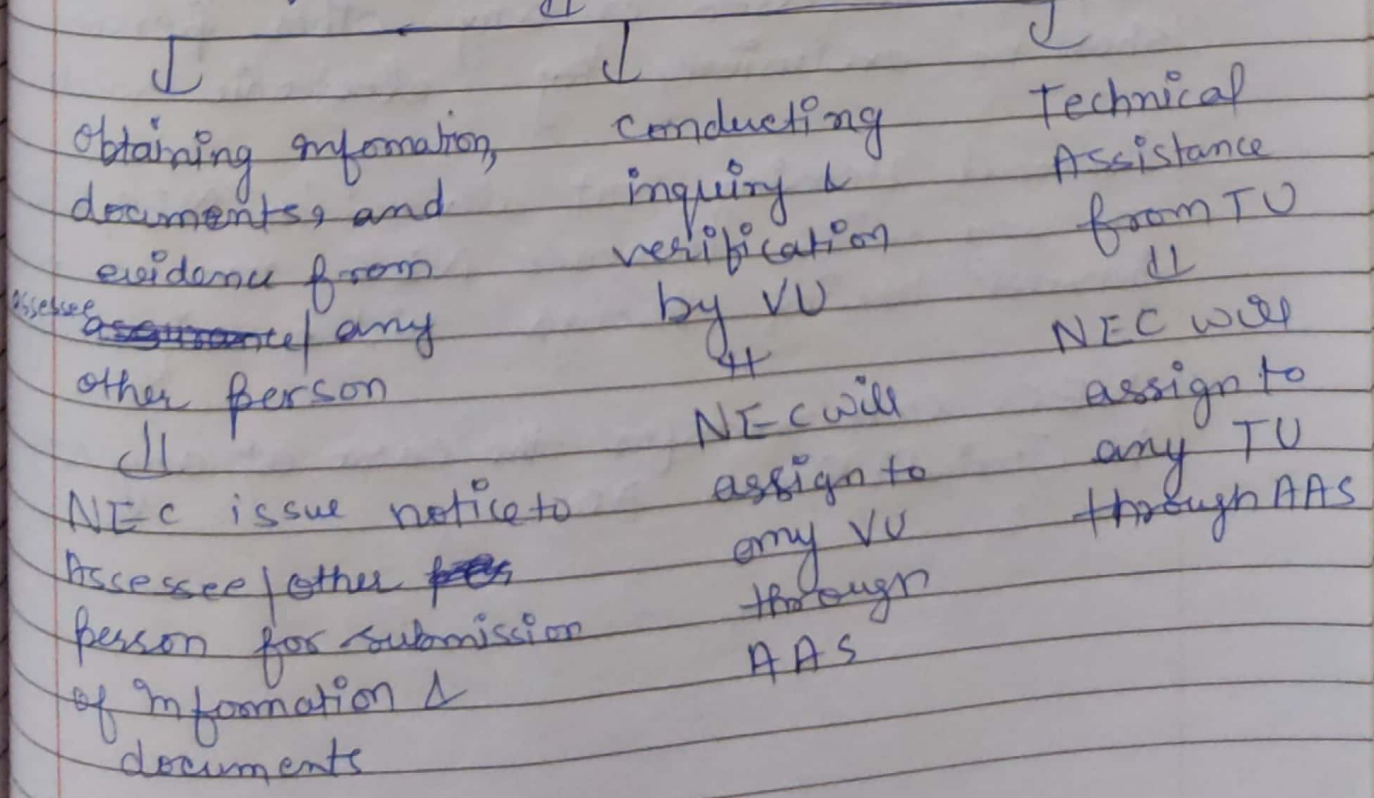 Obtaining information,
documents, and
evidence from
assessee / any
other person
NEC issue notice to
Assessee / other
person for submission
of information &
documents
conducting
inquiry &
verification
by VU
NEC will
assign to
any VU
through
AAS
Technical
Assistance
from TU
NEC will
assign to
any TU
through AAS